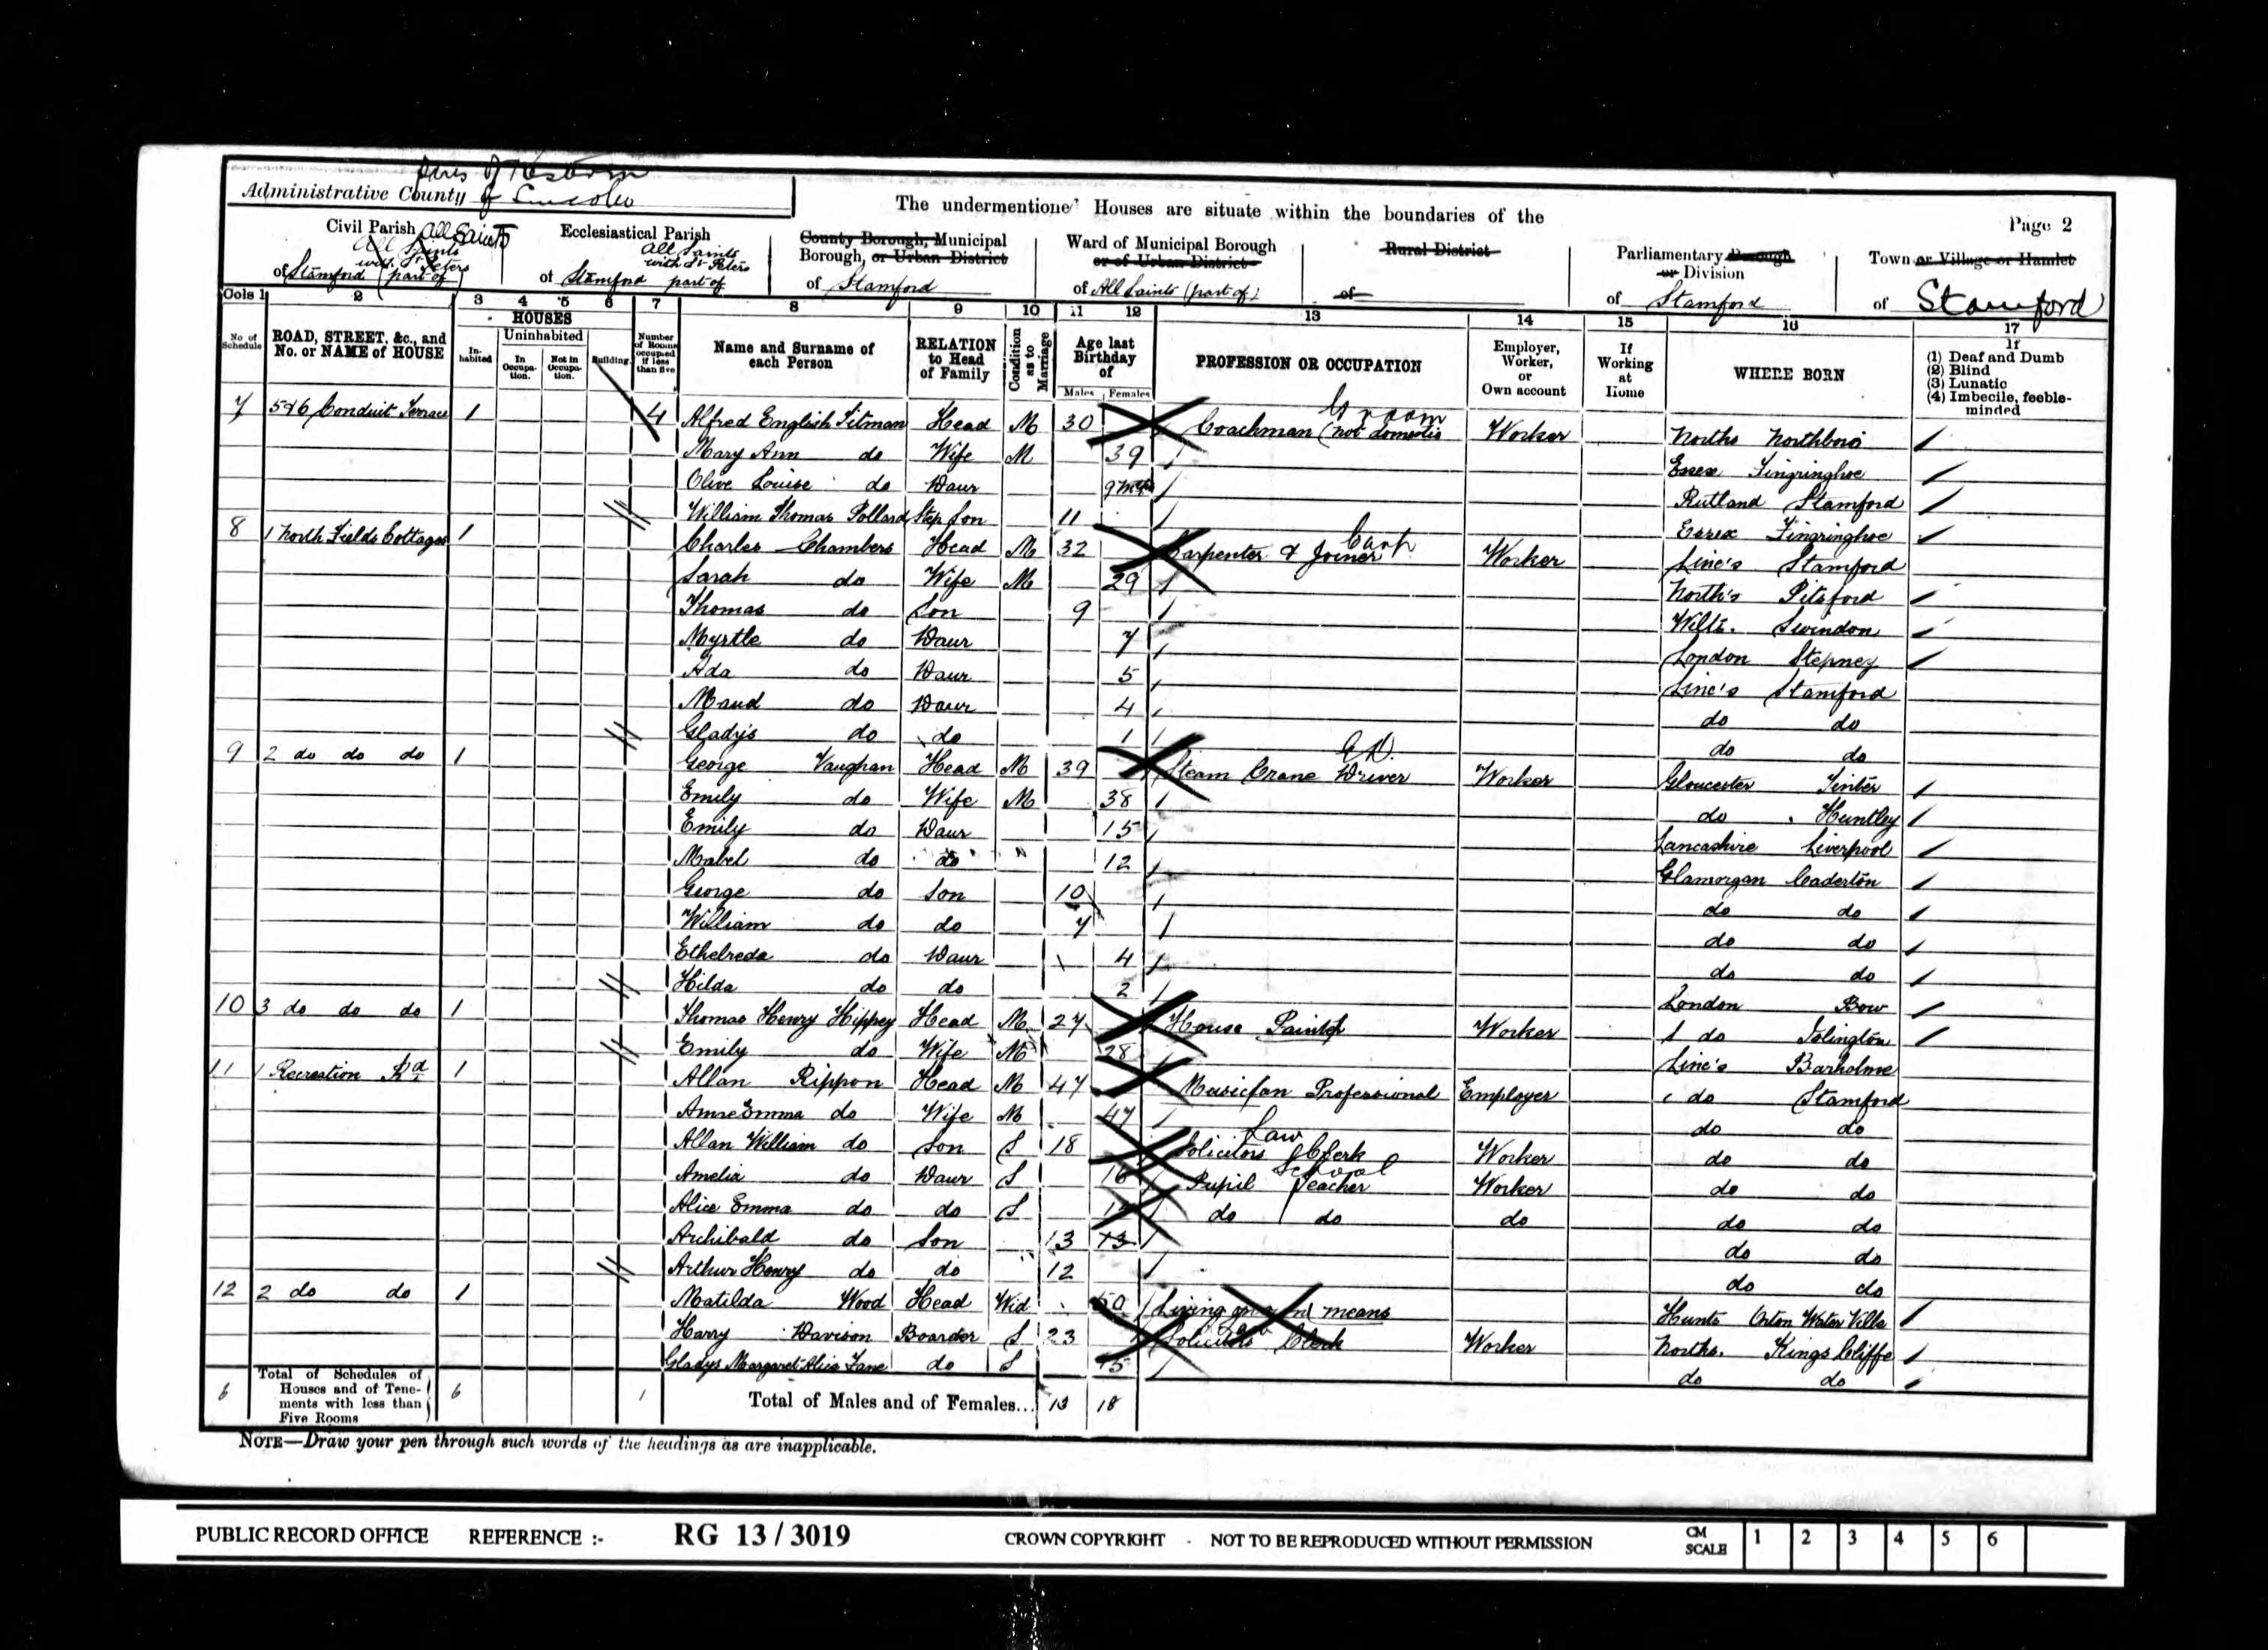 Administrative County of Lincoln
The undermentioned Houses are situate within the boundaries of the
Page 2
Civil Parish All Saints
All Saints
with St Peters
of Stamford (part of)
Ecclesiastical Parish
All Saints
with St Peters
of Stamford part of
County Borough, Municipal
Borough, or Urban District
of Stamford
Ward of Municipal Borough
or of Urban District
of All Saints (part of)
Rural District
of
Parliamentary Borough
or Division
of Stamford
Town or Village or Hamlet
of Stamford
Cols 1 2 3 4 5 6 7 8 9 10 11 12 13 14 15 16 17
No of Schedule
ROAD, STREET, &c., and No. or NAME of HOUSE
HOUSES
Inhabited
Uninhabited
In Occupation.
Not in Occupation.
Building
Number of Rooms occupied if less than five
Name and Surname of each Person
RELATION to Head of Family
Condition as to Marriage
Age last Birthday of
Males Females
PROFESSION OR OCCUPATION
Employer, Worker, or Own account
If Working at Home
WHERE BORN
If
(1) Deaf and Dumb
(2) Blind
(3) Lunatic
(4) Imbecile, feeble-minded
7 5+6 Conduit Terrace 1 4 Alfred English Titman Head M 30 Coachman (not domestic Groom Worker Norths Northboro
Mary Ann do Wife M 39 Essex Fingringhoe
Olive Louise do Daur 9 Rutland Stamford
William Thomas Pollard Step Son 11 Essex Fingringhoe
8 1 North Fields Cottages 1 Charles Chambers Head M 32 Carpenter & Joiner Carp Worker Linc's Stamford
Sarah do Wife M 29 North's Pitsford
Thomas do Son 9 Wilts. Swindon
Myrtle do Daur 7 London Stepney
Ada do Daur 5 Linc's Stamford
Maud do Daur 4 do do
Gladys do do 1 do do
9 2 do do do 1 George Vaughan Head M 39 Steam Crane Driver Worker Gloucester
Emily do Wife M 38 do Huntley
Emily do Daur 15 Lancashire Liverpool
Mabel do do 12 Glamorgan Caderton
George do Son 10 do do
William do do 7 do do
Ethelreda do Daur 4 do do
Hilda do do 2 London Bow
10 3 do do do 1 Thomas Henry Hippey Head M 27 House Painter Worker do Islington
Emily do Wife M 28 Linc's Barholme
11 1 Recreation Rd 1 Allan Rippon Head M 47 Musician Professional Employer do Stamford
Anne Emma do Wife M 47 do do
Allan William do Son S 18 Solicitors Clerk Law Worker do do
Amelia do Daur S 16 Pupil Teacher School Worker do do
Alice Emma do do S do do do do do
Archibald do Son 13 13 do do
Arthur Henry do do 12 do do
12 2 do do 1 Matilda Wood Head Wid 50 Living on own means Hunts Orton Water Ville
Harry Davison Boarder S 23 Solicitors Clerk Law Worker Norths. Kings Cliffe
Gladys Margaret Alice Lane do S 15 do do
6 Total of Schedules of Houses and of Tenements with less than Five Rooms 6 1 Total of Males and of Females... 13 18
NOTE—Draw your pen through such words of the headings as are inapplicable.
PUBLIC RECORD OFFICE REFERENCE :- RG 13 / 3019 CROWN COPYRIGHT - NOT TO BE REPRODUCED WITHOUT PERMISSION CM SCALE 1 2 3 4 5 6